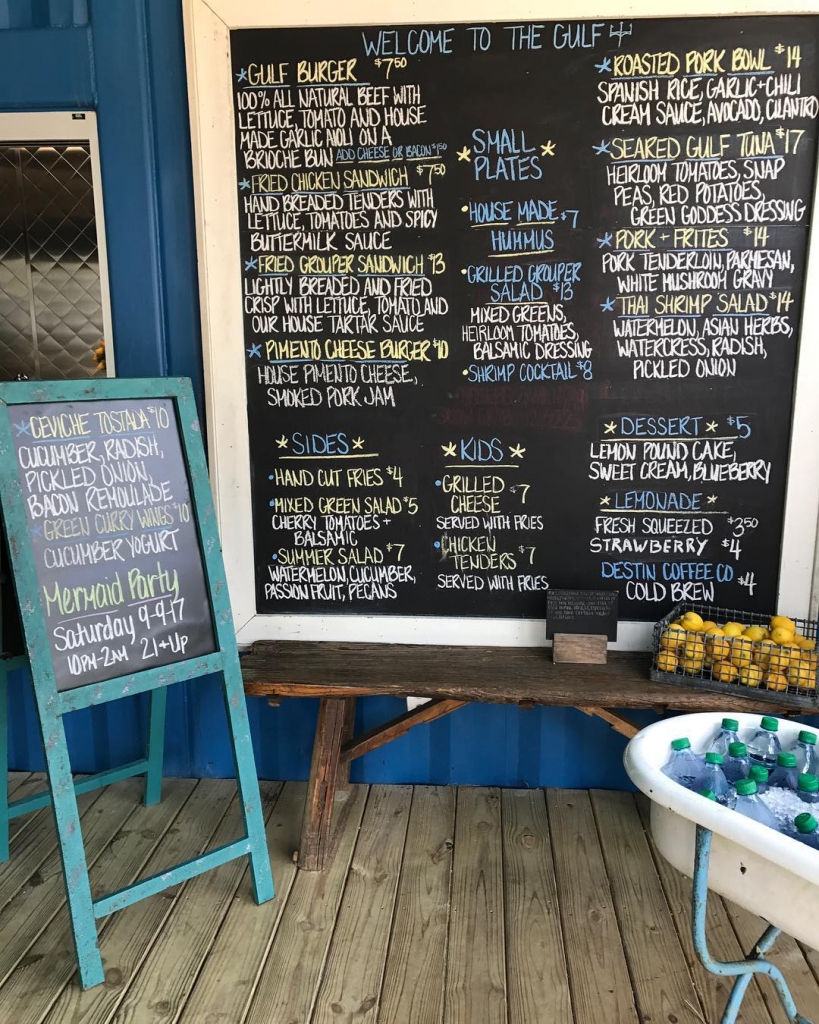 WELCOME TO THE GULF
GULF BURGER $7.50
100% ALL NATURAL BEEF WITH
LETTUCE, TOMATO AND HOUSE
MADE GARLIC AIOLI ON A
BRIOCHE BUN ADD CHEESE OR BACON $1.50
FRIED CHICKEN SANDWICH $7.50
HAND BREADED TENDERS WITH
LETTUCE, TOMATOES AND SPICY
BUTTERMILK SAUCE
FRIED GROUPER SANDWICH $13
LIGHTLY BREADED AND FRIED
CRISP WITH LETTUCE, TOMATO AND
OUR HOUSE TARTAR SAUCE
PIMENTO CHEESE BURGER $10
HOUSE PIMENTO CHEESE,
SMOKED PORK JAM
SMALL
PLATES
HOUSE MADE $7
HUMMUS
GRILLED GROUPER
SALAD $13
MIXED GREENS,
HEIRLOOM TOMATOES,
BALSAMIC DRESSING
SHRIMP COCKTAIL $8
ROASTED PORK BOWL $14
SPANISH RICE, GARLIC+CHILI
CREAM SAUCE, AVOCADO, CILANTRO
SEARED GULF TUNA $17
HEIRLOOM TOMATOES, SNAP
PEAS, RED POTATOES,
GREEN GODDESS DRESSING
PORK + FRITES $14
PORK TENDERLOIN, PARMESAN,
WHITE MUSHROOM GRAVY
THAI SHRIMP SALAD $14
WATERMELON, ASIAN HERBS,
WATERCRESS, RADISH,
PICKLED ONION
SIDES
HAND CUT FRIES $4
MIXED GREEN SALAD $5
CHERRY TOMATOES +
BALSAMIC
SUMMER SALAD $7
WATERMELON, CUCUMBER,
PASSION FRUIT, PECANS
KIDS
GRILLED
CHEESE $7
SERVED WITH FRIES
CHICKEN
TENDERS $7
SERVED WITH FRIES
DESSERT $5
LEMON POUND CAKE,
SWEET CREAM, BLUEBERRY
LEMONADE
FRESH SQUEEZED $3.50
STRAWBERRY $4
DESTIN COFFEE CO
COLD BREW $4
CEVICHE TOSTADA $10
CUCUMBER, RADISH,
PICKLED ONION,
BACON REMOULADE
GREEN CURRY WINGS $10
CUCUMBER YOGURT
Mermaid Party
Saturday 9-9-17
10PM-2AM 21+UP